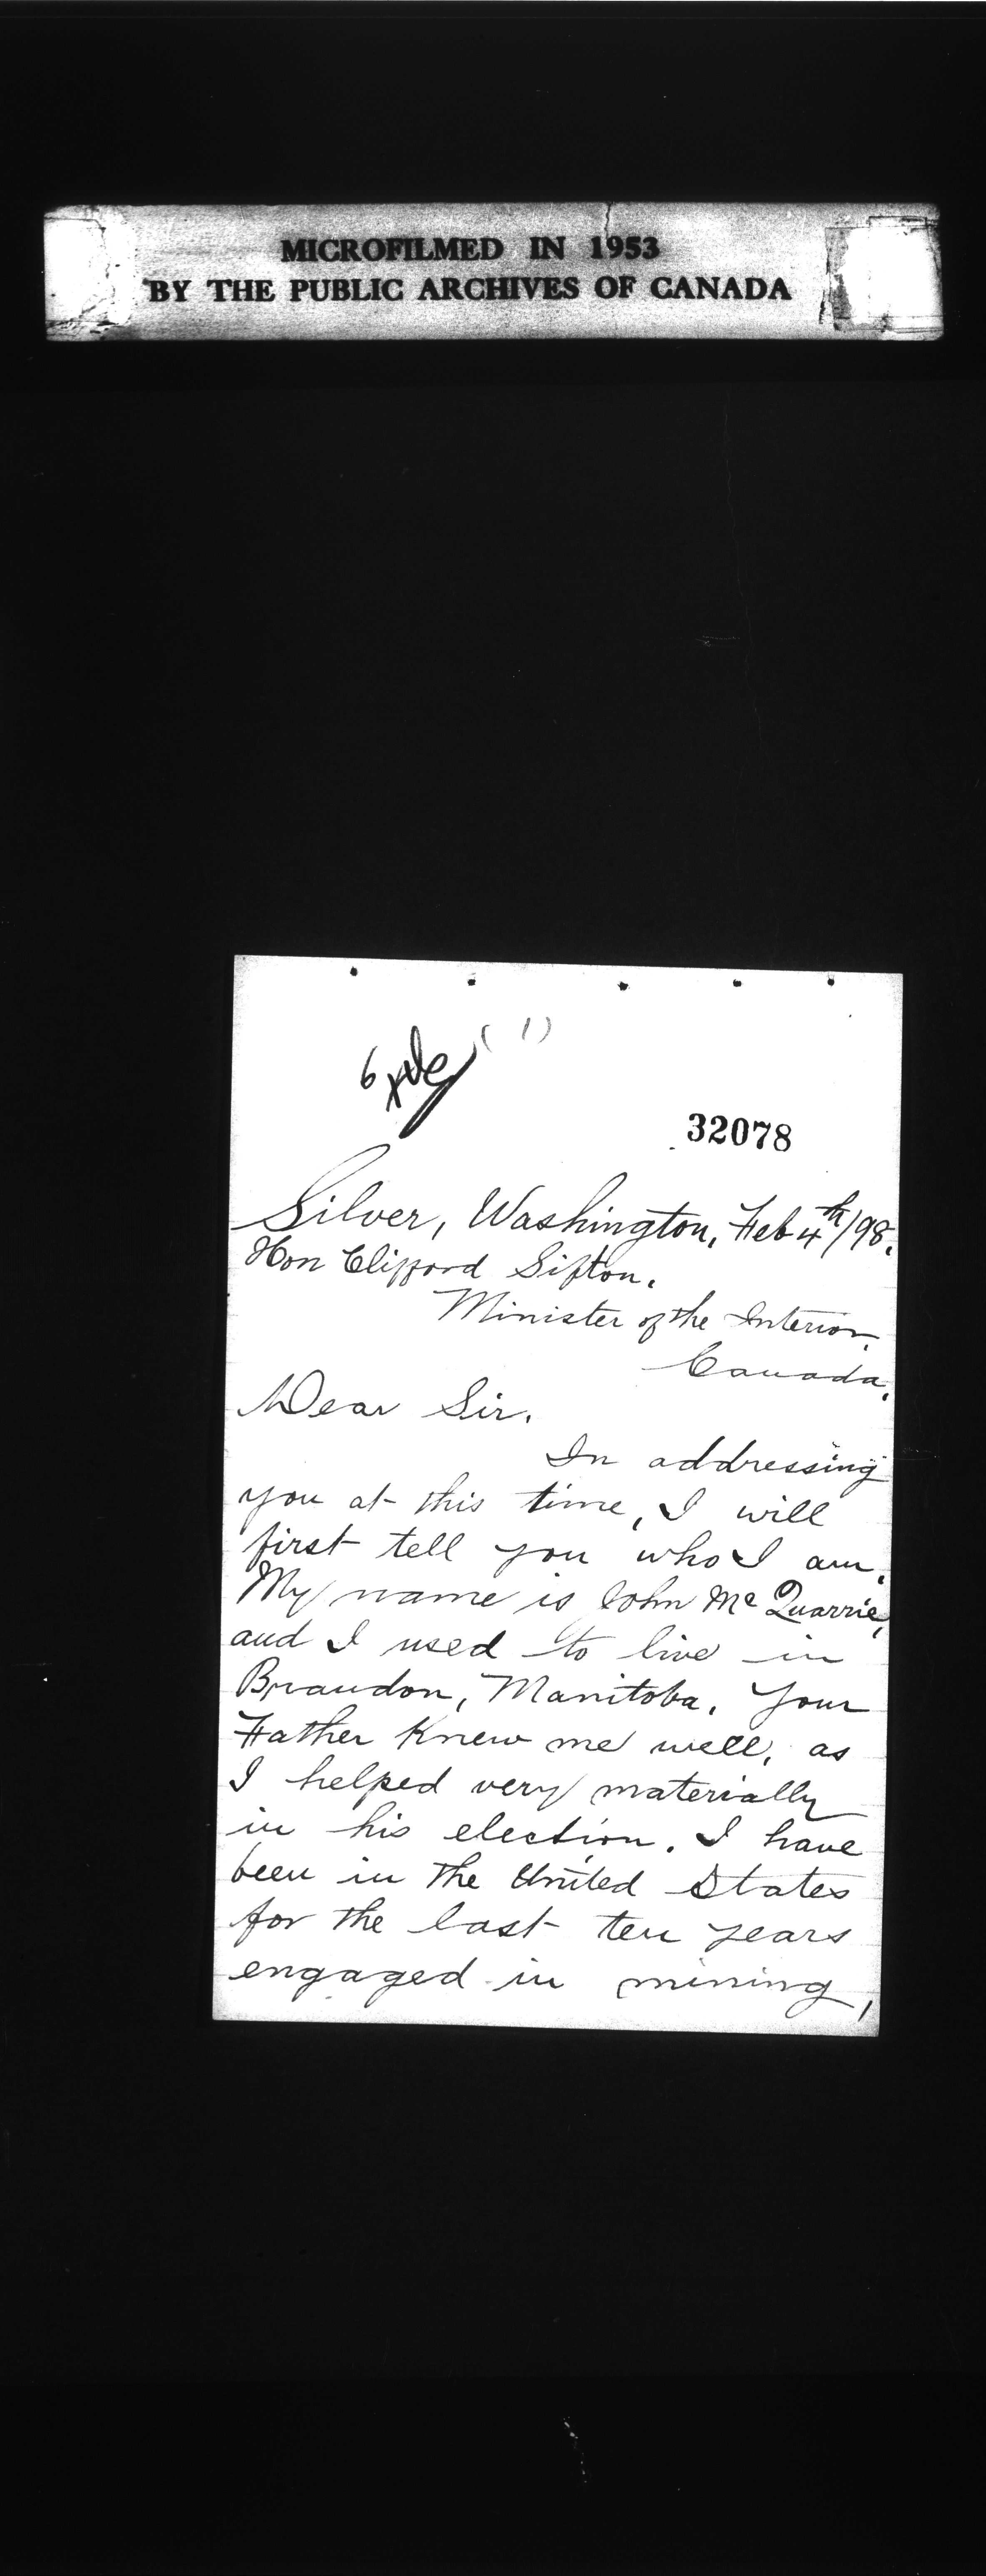 MICROFILMED IN 1953
BY THE PUBLIC ARCHIVES OF CANADA
(1)
6
32078
Silver, Washington, Feb 4th/98.
Hon Clifford Sifton.
Minister of the Interior.
Canada.
Dear Sir.
In addressing
you at this time, I will
first tell you who I am.
My name is John Mc Quarrie,
and I used to live in
Brandon, Manitoba. Your
Father Knew me well, as
I helped very materially
in his election. I have
been in the United States
for the last ten years
engaged in mining,